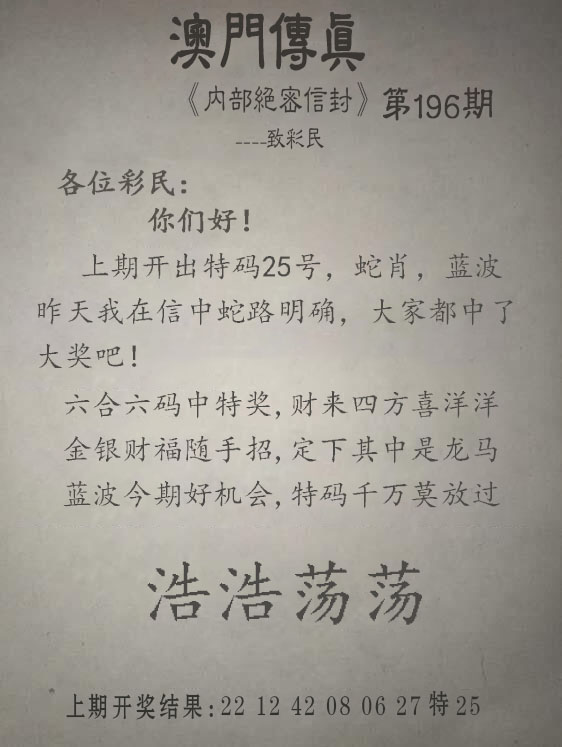 澳門傳真
《内部絕密信封》第196期
----致彩民
各位彩民:
你们好!
上期开出特码25号，蛇肖，蓝波
昨天我在信中蛇路明确，大家都中了
大奖吧!
六合六码中特奖,财来四方喜洋洋
金银财福随手招,定下其中是龙马
蓝波今期好机会,特码千万莫放过
浩浩荡荡
上期开奖结果:22 12 42 08 06 27 特25